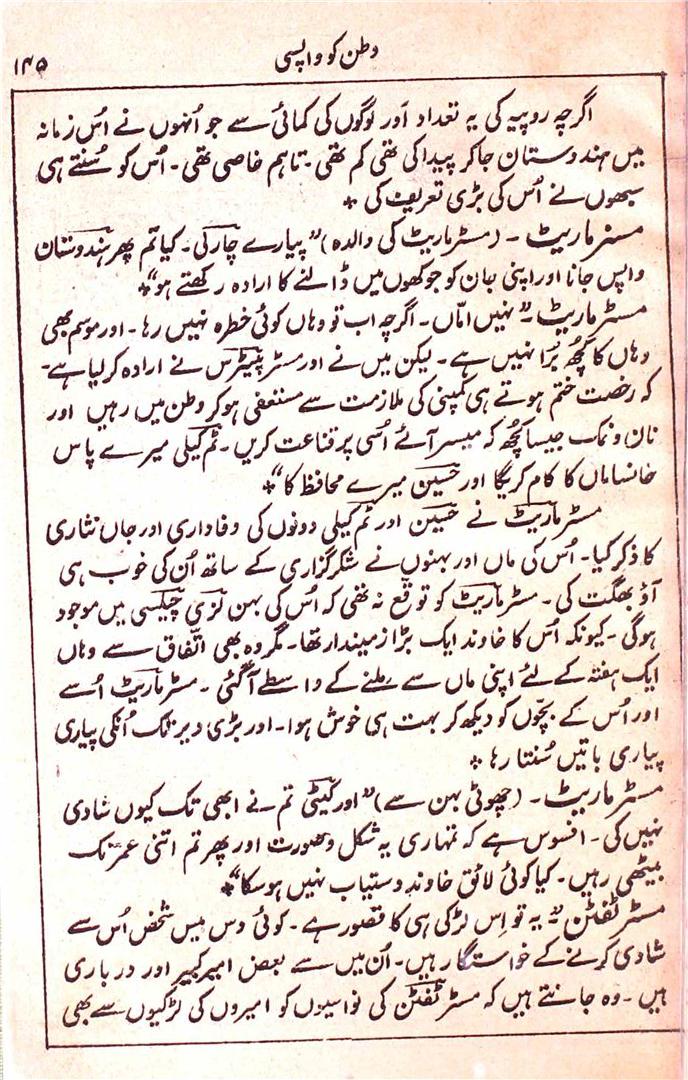 وطن کو واپسی
۱۴۵
اگرچہ روپیہ کی یہ تعداد اَور لوگوں کی کمائی سے جو اُنہوں نے اُس زمانہ
میں ہندوستان جاکر پیدا کی تھی کم تھی۔ تاہم خاصی تھی۔ اُس کو سُنتے ہی
سبھوں نے اُس کی بڑی تعریف کی *
مسنر ماریٹ ۔ (مسٹر ماریٹ کی والدہ) ”پیارے چارکی۔ کیا تم پھر ہندوستان
واپس جانا اور اپنی جان کو جوکھوں میں ڈالنے کا ارادہ رکھتے ہو“*
مسٹر ماریٹ۔” نہیں امّاں۔ اگرچہ اب تو وہاں کوئی خطرہ نہیں رہا۔ اور موسم بھی
وہاں کا کچُھ بُرا نہیں ہے۔ لیکن میں نے اور مسٹر پیٹرس نے ارادہ کرلیا ہے۔
کہ رخصت ختم ہوتے ہی کمپنی کی ملازمت سے مستعفی ہوکر وطن میں رہیں اور
نان و نمک جیسا کچُھ کہ میسر آئے اُسی پر قناعت کریں۔ ٹم کیلی میرے پاس
خانساماں کا کام کریگا اور حسین میرے محافظ کا“*
مسٹر ماریٹ نے حسین اور ٹم کیلی دونوں کی وفاداری اور جاں نثاری
کا ذکر کیا۔ اُس کی ماں اور بہنوں نے شکرگزاری کے ساتھ اُن کی خوب ہی
آؤ بھگت کی۔ مسٹر ماریٹ کو توقع نہ تھی کہ اُس کی بہن لزی چیلسی میں موجود
ہوگی ۔ کیونکہ اُس کا خاوند ایک بڑا زمیندار تھا۔ مگر وہ بھی اتّفاق سے وہاں
ایک ہفتہ کے لئے اپنی ماں سے ملنے کے واسطے آ گئی ۔ مسٹر ماریٹ اُسے
اور اُس کے بچّوں کو دیکھ کر بہت ہی خوش ہوا۔ اور بڑی دیر تک اُنکی پیاری
پیاری باتیں سُنتا رہا *
مسٹر ماریٹ۔ (چھوٹی بہن سے) ”اور کیٹی تم نے ابھی تک کیوں شادی
نہیں کی۔ افسوس ہے کہ تمہاری یہ شکل وصورت اور پھر تم اتنی عمر تک
بیٹھی رہیں۔ کیا کوئی لائق خاوند دستیاب نہیں ہوسکا“*
مسٹر ٹفٹن۔” یہ تو اِس لڑکی ہی کا قصور ہے۔ کوئی دس بیس شخص اُس سے
شادی کرنے کے خواستگار ہیں۔ اُن میں سے بعض امیر کبیر اور درباری
ہیں ۔ وہ جانتے ہیں کہ مسٹر ٹفٹن کی نواسیوں کو امیروں کی لڑکیوں سے بھی